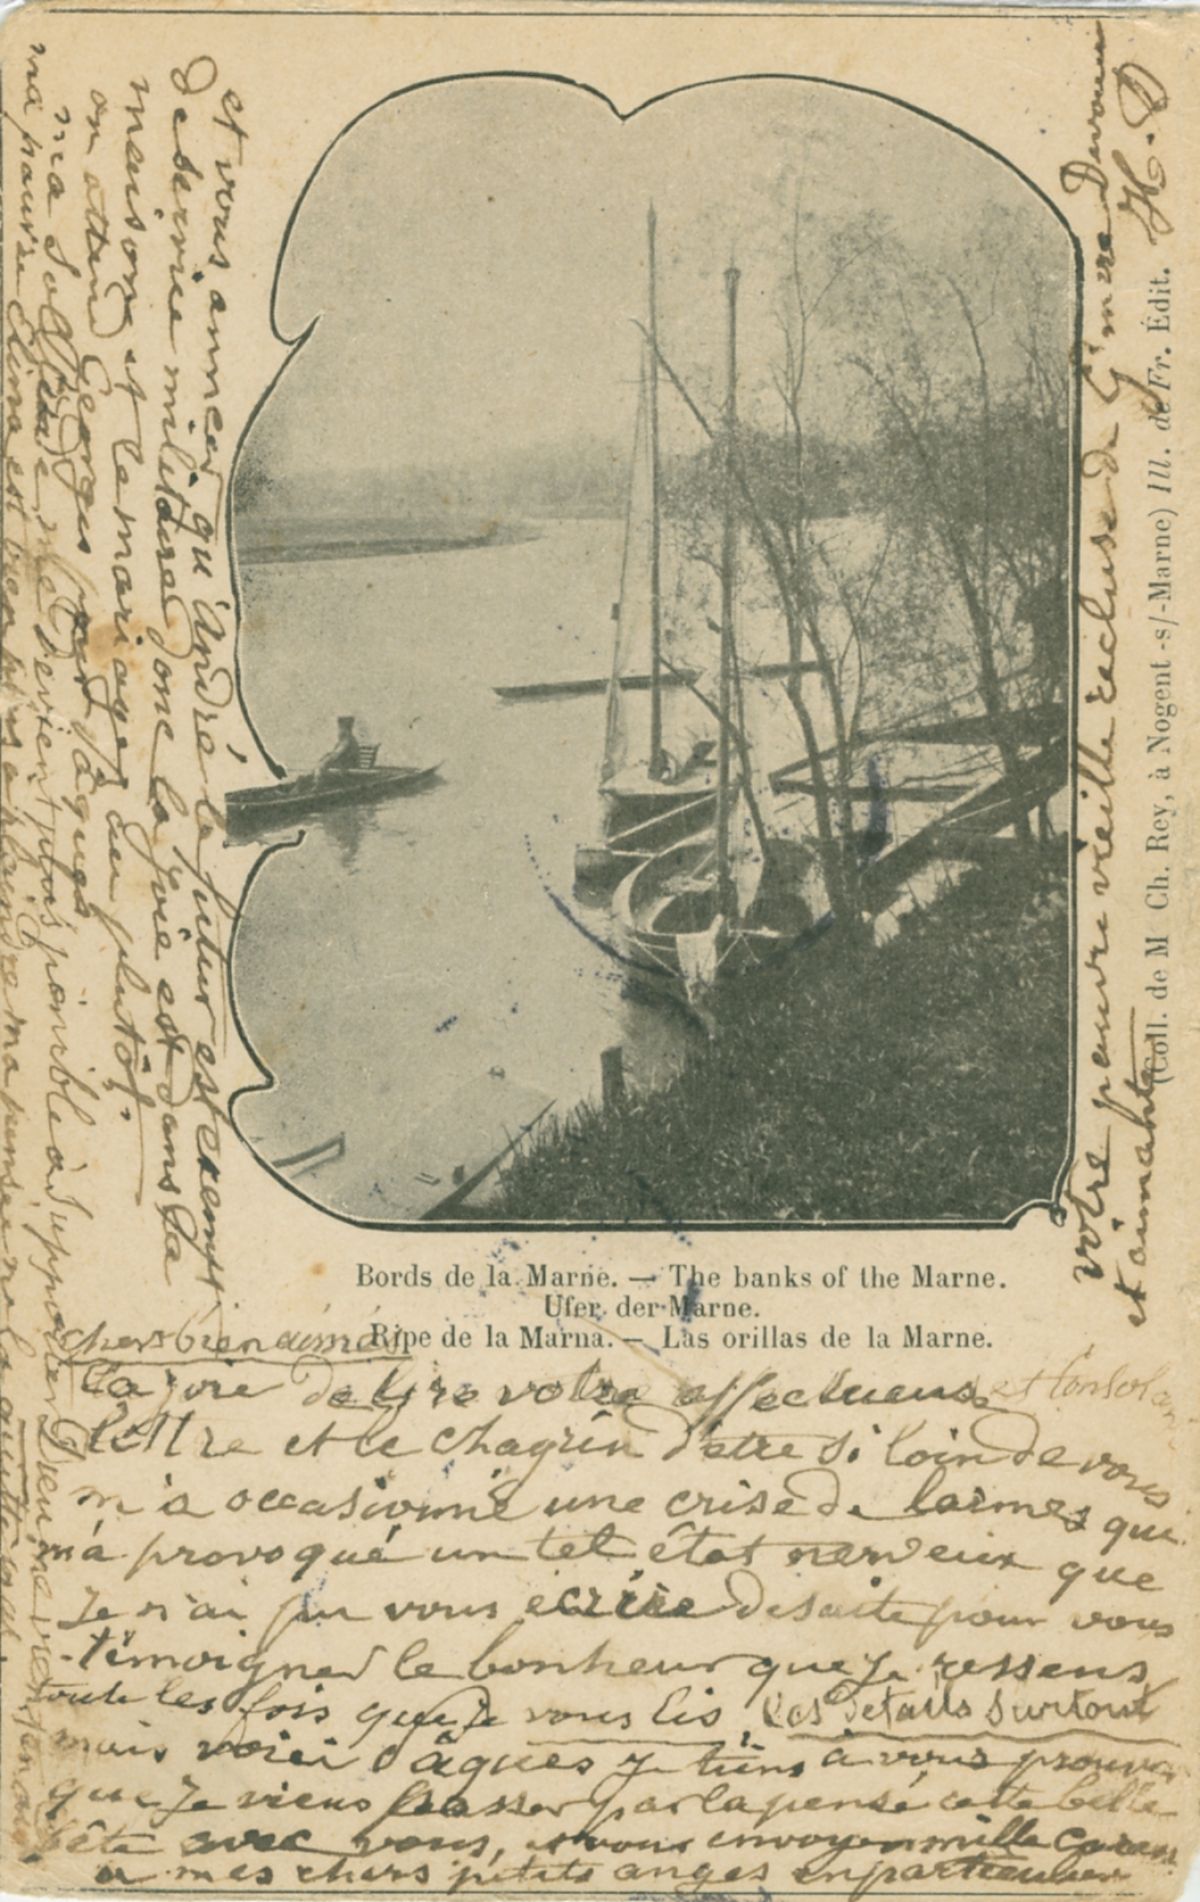 Bords de la Marne. — The banks of the Marne.
Ufer der Marne.
Ripe de la Marna. — Las orillas de la Marne.
(Coll. de M Ch. Rey, à Nogent-s/-Marne) Ill. de Fr. Édit.
chers bien aimés
La joie de lire votre affectueuse et
lettre et le chagrin d'être si loin de vous
m'a occasionné une crise de larmes qui
m'a provoqué un tel état nerveux que
Je n'ai pu vous écrire de suite pour vous
témoigner le bonheur que Je ressens
toute les fois que Je vous lis, les détails surtout
mais voici Pâques Je tiens à vous prouver
que Je viens passer par la pensé cette belle
fête avec vous, et vous envoyer mille
a mes chers petits anges en particulier
et vous annoncer qu'André le futur est exempt
de service militaire donc la joie est dans la
maison et le mariage au plutôt.
on attend Georges pour Pâques
ma solitude me devient plus pénible à supporter
ma pauvre est bien plus à plaindre ma pensée ne la quitte pas
votre pauvre vieille recluse de
et aimante H. D